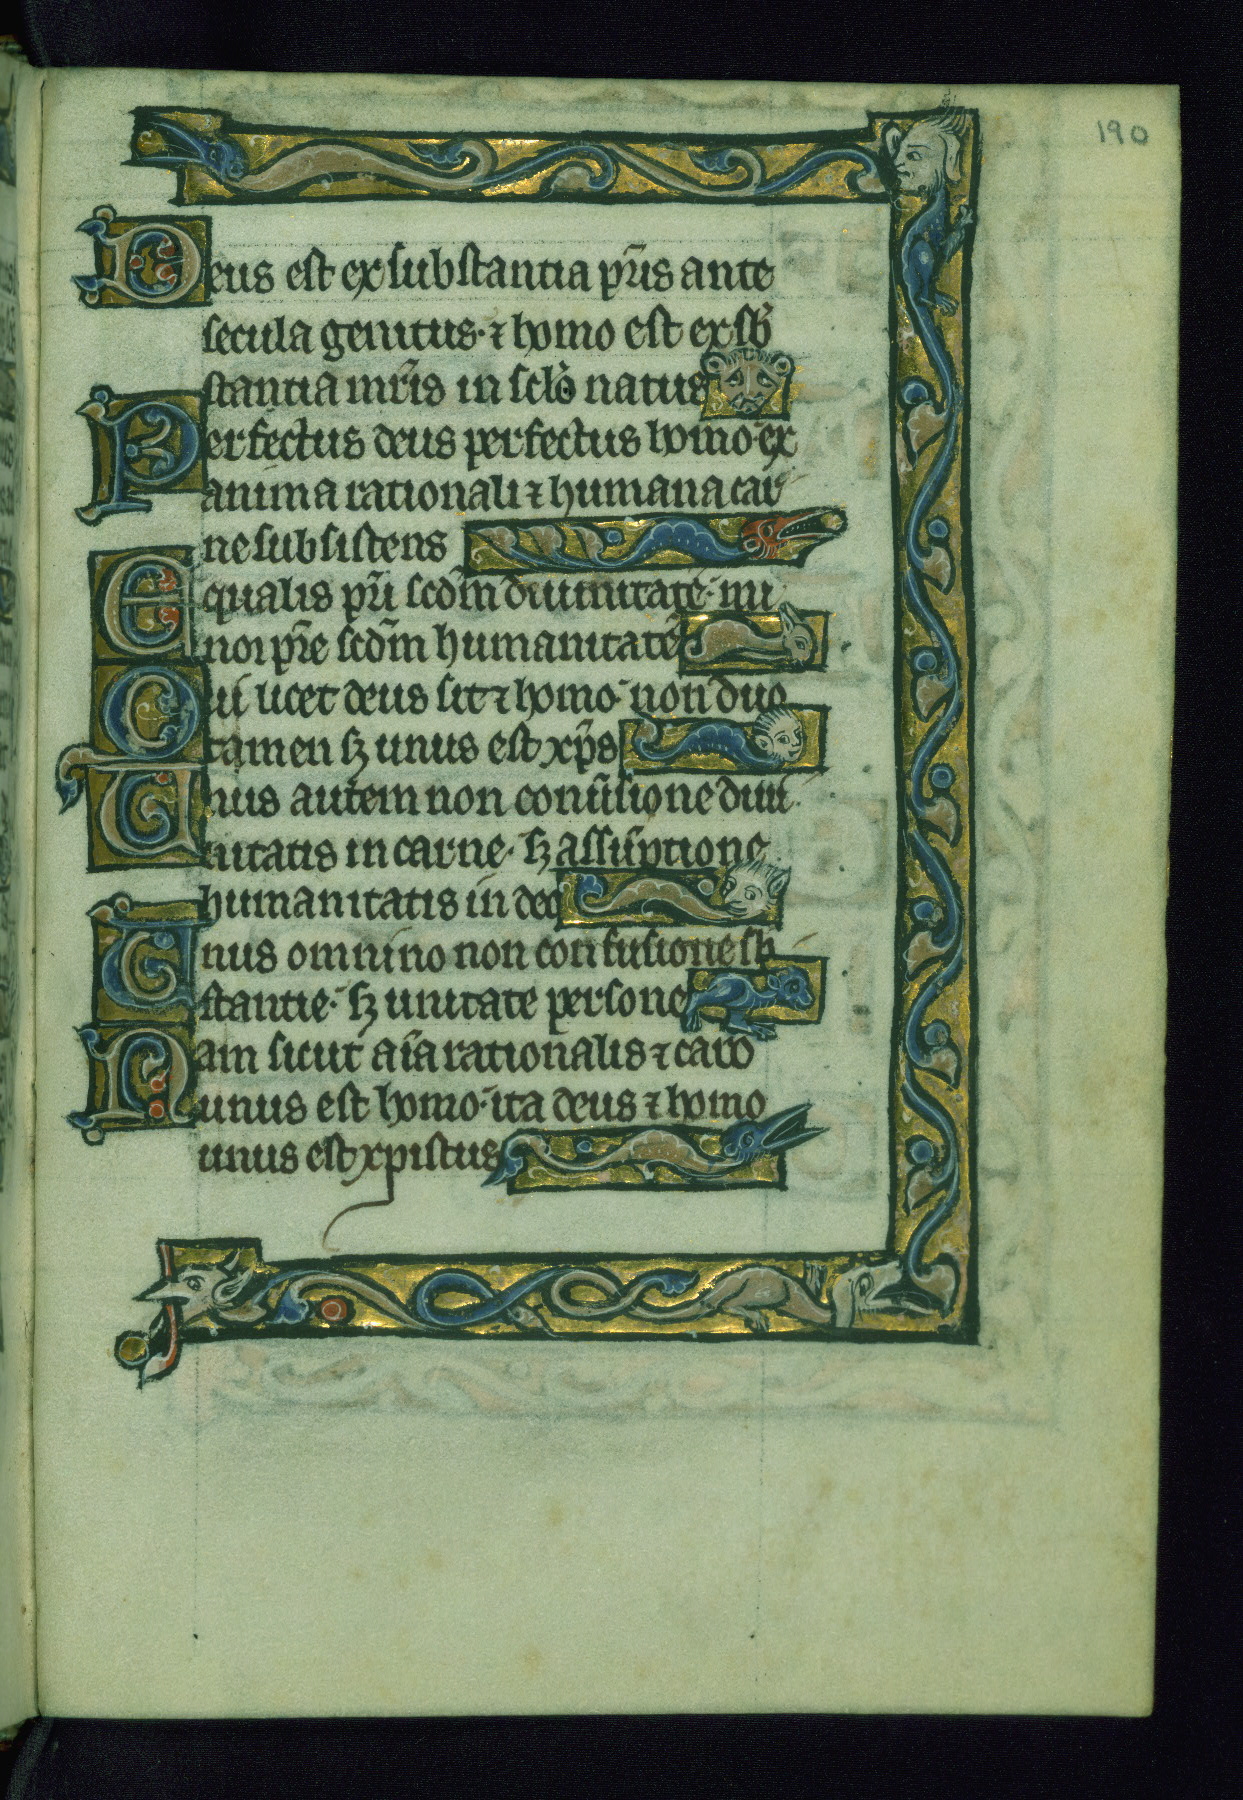 190
Deus est ex substantia pr̄is ante
secula genitus· ⁊ homo est ex sb̄
stantia mr̄is in sclo̅ natus
Perfectus deus perfectus homo· ex
anima rationali ⁊ humana car
ne subsistens
Equalis pr̄i scd̄m diuinitatē· mi
nor pr̄e scd̄m humanitatē
Qui licet deus sit ⁊ homo· non duo
tamen sꝫ unus est xp̄s
Unus autem non conūsione diui
nitatis in carne· sꝫ assūptione
humanitatis in deo
Unus omnino non confusione sb
stantie· sꝫ unitate persone
Nam sicut aīa rationalis ⁊ caro
unus est homo· ita deus ⁊ homo
unus est xpistus